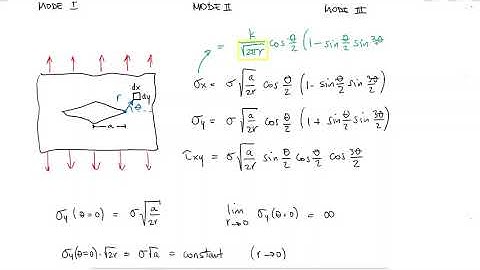 MODE I MODE II MODE III
= k/√2πr cos θ/2 (1 - sin θ/2 sin 3θ/2
dx
r
dy
θ
a
σx = σ √a/2r cos θ/2 (1 - sin θ/2 sin 3θ/2)
σy = σ √a/2r cos θ/2 (1 + sin θ/2 sin 3θ/2)
τxy = σ √a/2r sin θ/2 cos θ/2 cos 3θ/2
σy (θ=0) = σ √a/2r lim r→0 σy (θ=0) = ∞
σy(θ=0)·√2r = σ√a = constant (r→0)